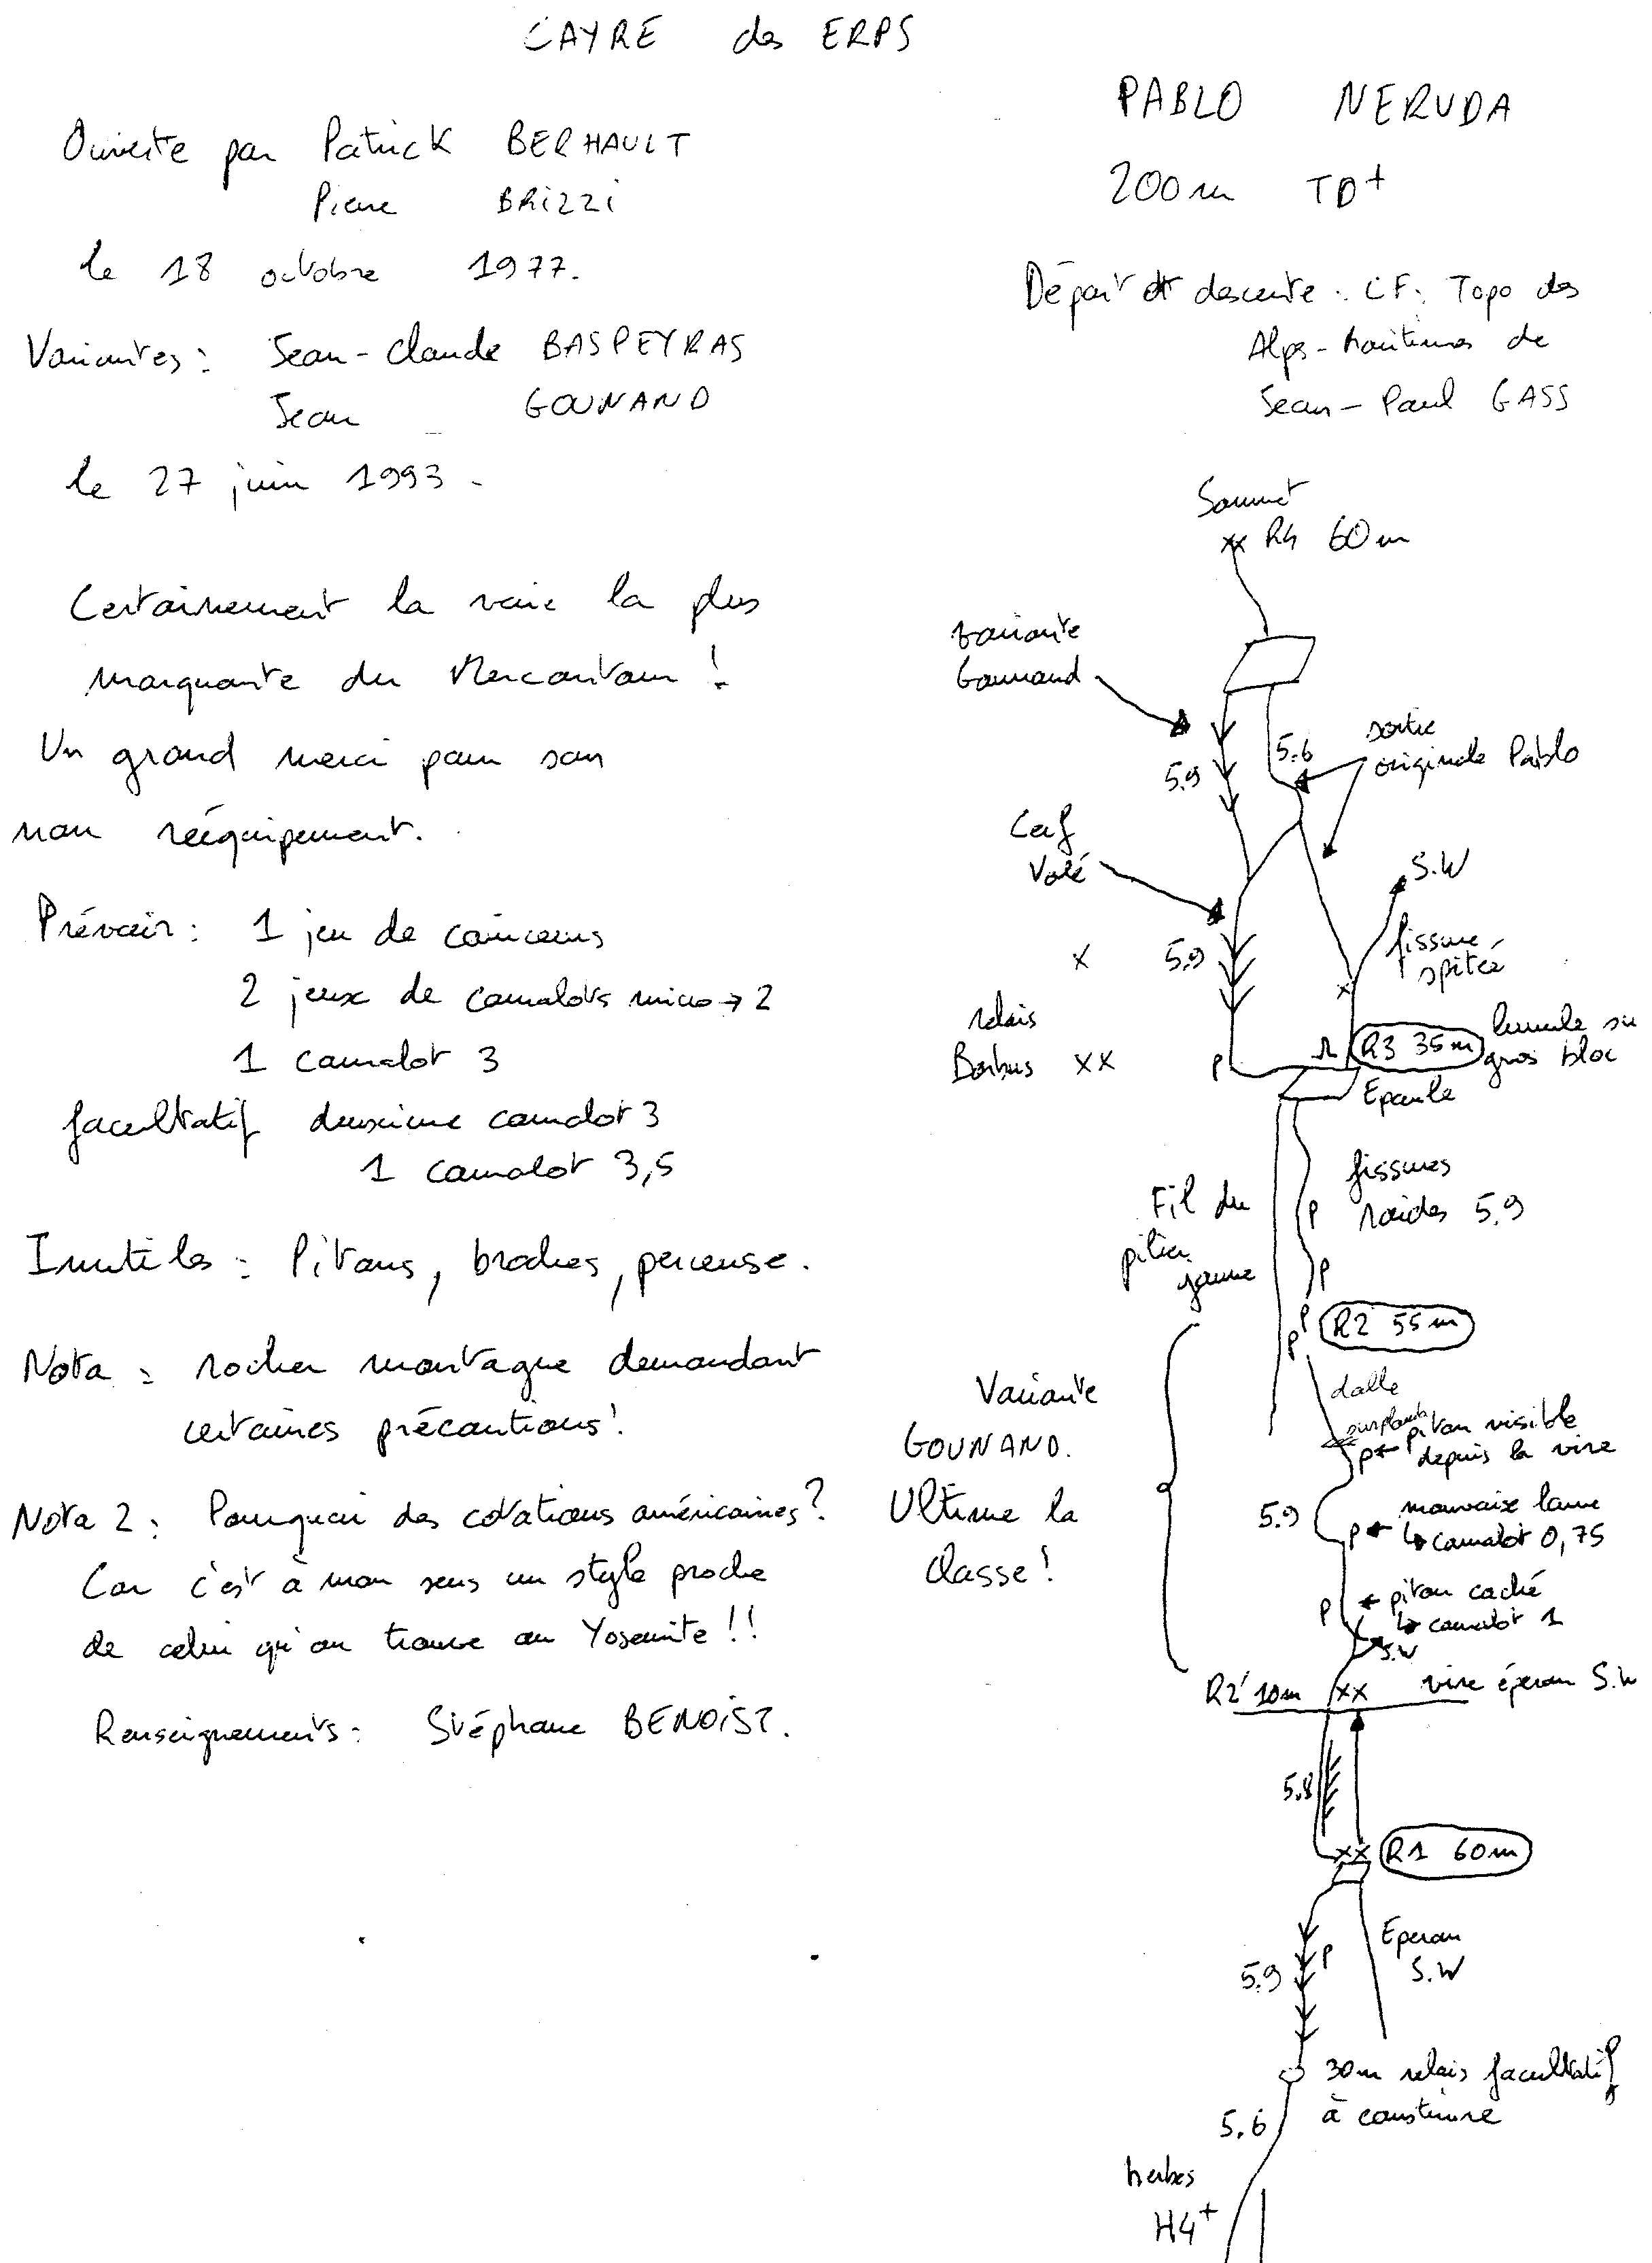 CAYRE des ERPS
Ouverte par Patrick BERHAULT
Pierre BRIZZI
le 18 octobre 1977.
Variantes : Jean-Claude BASPEYRAS
Jean GOUNAND
le 27 juin 1993.
Certainement la voie la plus
marquante du Mercantour !
Un grand merci pour son
non rééquipement.
Prévoir : 1 jeu de coinceurs
2 jeux de camalots micro → 2
1 camalot 3
facultatif deuxième camalot 3
1 camalot 3,5
Inutiles : Pitons, broches, perceuse.
Nota : rocher montagne demandant
certaines précautions !
Nota 2 : Pourquoi des cotations américaines ?
Car c'est à mon sens un style proche
de celui qu'on trouve au Yosemite !!
Renseignements : Stéphane BENOIST.
PABLO NERUDA
200m TD+
Départ et descente : CF : Topo des
Alpes-Maritimes de
Jean-Paul GASS
Sommet
xx R4 60m
variante
Gounand
5.9
5.6
sortie
originale Pablo
Cerf
Volé
S.W
x
5.9
fissure
spitée
x
relais
Barbus xx
P
R3 35m
lunule sur
gros bloc
Epaule
Fil du
pilier
jaune
fissures
raides 5.9
P
P
P
P
R2 55m
Variante
GOUNAND.
Ultime la
classe !
dalle
surplomb
P ← piton visible
depuis la vire
5.9
P ← mauvaise lame
↳ camalot 0,75
P
← piton caché
↳ camalot 1
S.W
R2' 10m xx vire éperon S.W
5.8
xx R1 60m
5.9
P
Eperon
S.W
30m relais facultatif
à construire
5.6
herbes
H4+